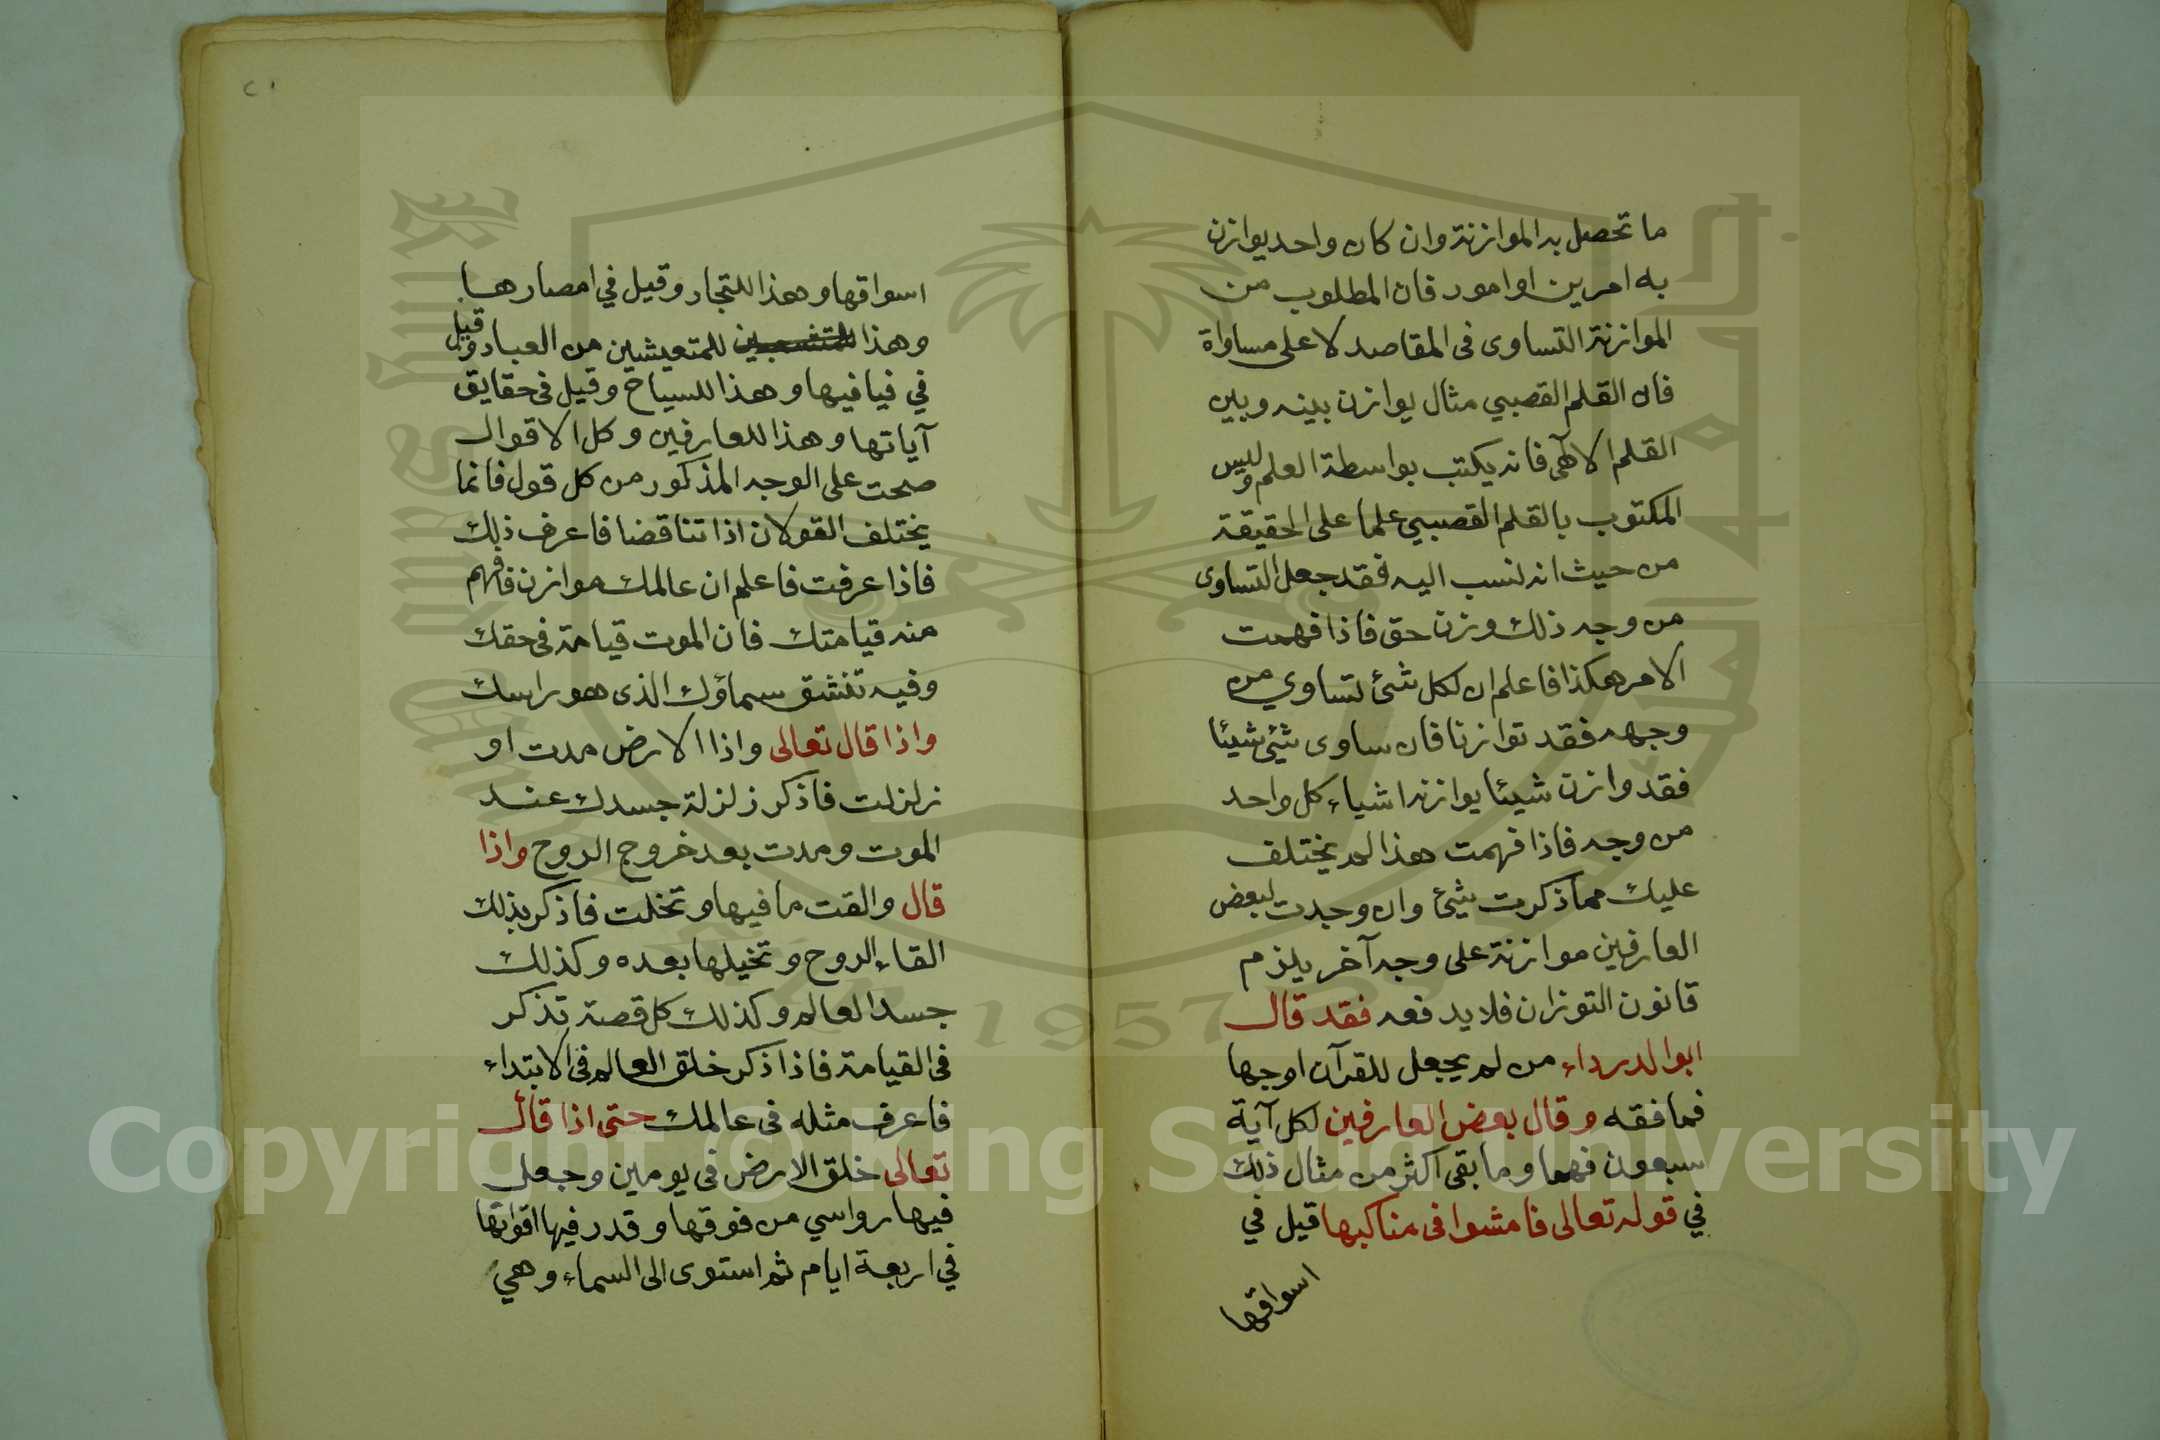 ما تحصل به الموازنة وان كان واحد يوازن
به امرين او امور فان المطلوب من
الموازنة التساوى فى المقاصد لا على مساواة
فان القلم القصبي مثال يوازن بينه وبين
القلم الالهى فانه يكتب بواسطة العلم وليس
المكتوب بالقلم القصبي علما على الحقيقة
من حيث انه لنسب اليه فقد جعل التساوى
من وجه ذلك وزن حق فاذا فهمت
الامر هكذا فاعلم ان لكل شئ تساوي من
وجهه فقد توازنا فان ساوى شئ شيئا
فقد وازن شيئا يوازنه اشياء كل واحد
من وجه فاذا فهمت هذا لم يختلف
عليك مما ذكرت شئ وان وجدت لبعض
العارفين موازنة على وجه آخر يلزم
قانون التوزان فلا يدفعه فقد قال
ابوا لدرداء من لم يجعل للقرآن اوجها
فما فقه وقال بعض العارفين لكل آية
سبعون فهما وما بقى اكثر من مثال ذلك
في قوله تعالى فامشوا فى مناكبها قيل في
اسواقها
٢١
اسواقها وهذا للتجار وقيل في امصارها
وهذا للمتعيشين من العباد وقيل
في فيافيها وهذا للسياح وقيل فى حقايق
آياتها وهذا للعارفين وكل الاقوال
صحت على الوجه المذكور من كل قول فانما
يختلف القولان اذا تناقضا فاعرف ذلك
فاذا عرفت فاعلم ان عالمك موازن فافهم
منه قيامتك فان الموت قيامة فى حقك
وفيه تنشق سماؤك الذى هو راسك
واذا قال تعالى واذا الارض مدت او
زلزلت فاذكر زلزلة جسدك عند
الموت ومدت بعد خروج الروح واذا
قال والقت ما فيها وتخلت فاذكر بذلك
القاء الروح وتخيلها بعده وكذلك
جسد العالم وكذلك كل قصة تذكر
فى القيامة فاذا ذكر خلق العالم فى الابتداء
فاعرف مثله فى عالمك حتى اذا قال
تعالى خلق الارض فى يومين وجعل
فيها رواسي من فوقها وقدر فيها اقواتها
في اربعة ايام ثم استوى الى السماء وهي
Copyright © King Saud University
1957